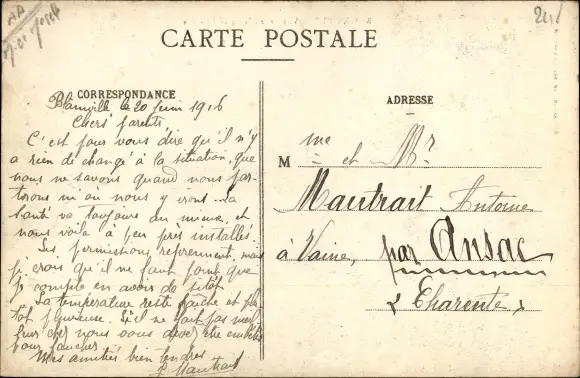 CARTE POSTALE
CORRESPONDANCE
Blainville le 20 Juin 1916
Chers parents,
C'est pour vous dire qu'il n'y
a rien de changé à la situation, que
nous ne savons quand nous par-
tirons ni où nous y irons. La
santé va toujours du mieux, et
nous voilà à peu près installés.
Les permissions reprennent, mais
je crois qu'il ne faut point que
je compte en avoir de sitôt.
La température reste fraîche et plu
tôt pluvieuse. S'il ne fait pas meil
leur chez nous vous devez être embêtés
pour faucher.
Mes amitiés bien tendres
Mautrait
ADRESSE
M me et Mr
Mautrait Antoine
à Vaine, par Ansac
(Charente)